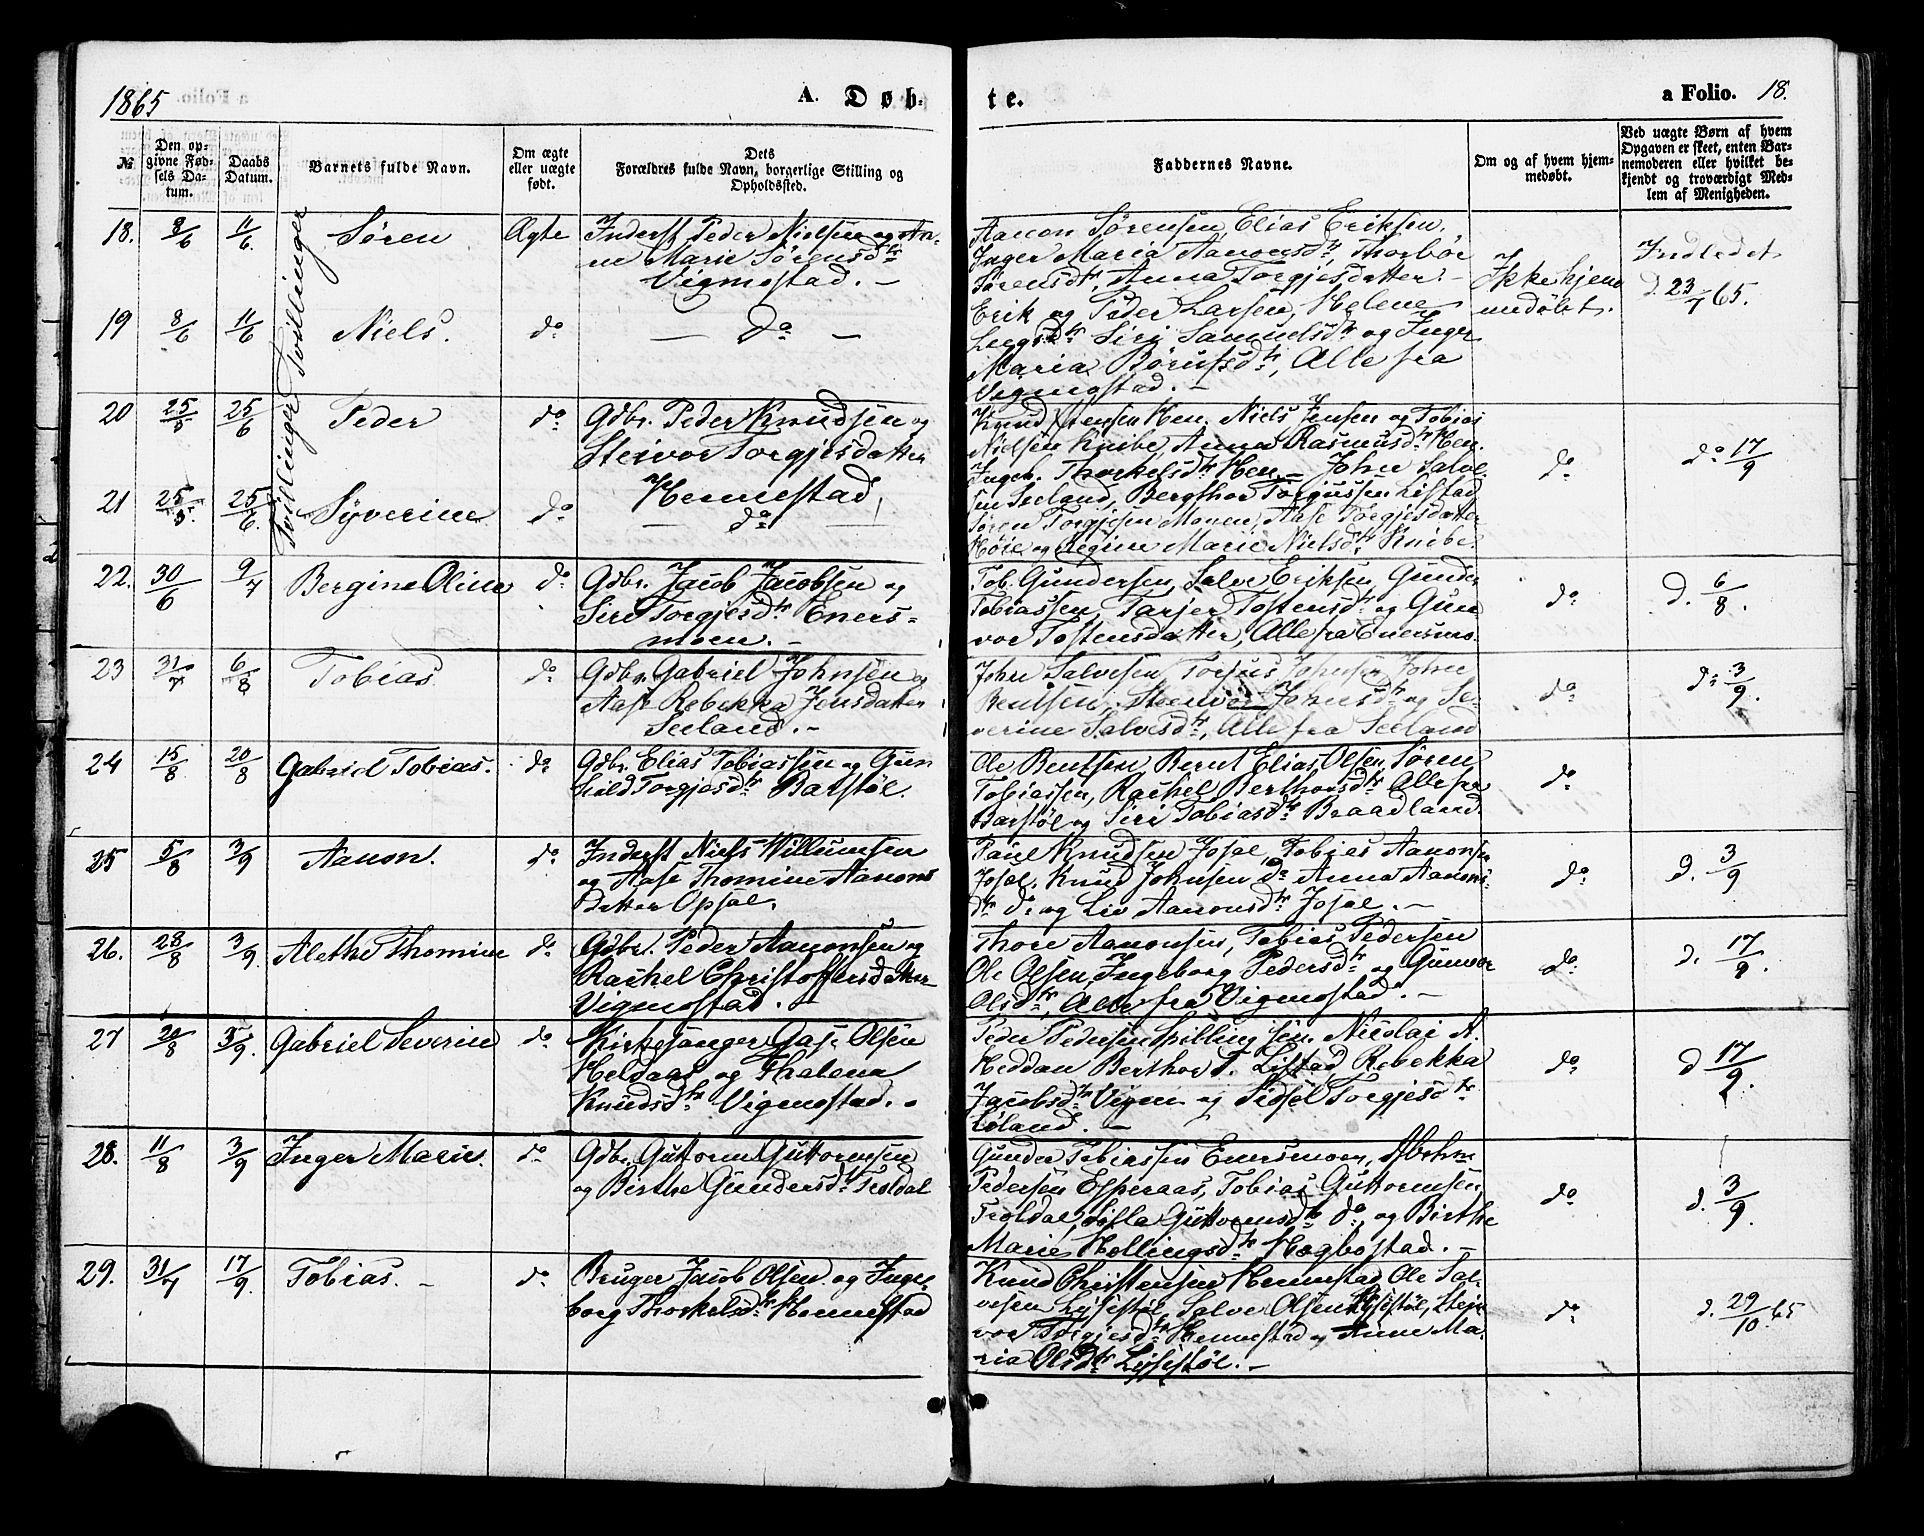 1865
A. Døb-
te.
a Folio. 18.
№
Den op-
givne Fød-
sels Da-
tum.
Daabs
Datum.
Barnets fulde Navn.
Om ægte
eller uægte
født.
Dets
Forældres fulde Navn, borgerlige Stilling og
Opholdssted.
Faddernes Navne.
Om og af hvem hjem-
medøbt.
Ved uægte Børn af hvem
Opgaven er skeet, enten Bar-
nemoderen eller hvilket be-
kjendt og troværdigt Med-
lem af Menigheden.
18. 8/6 11/6 Søren Ægte Inderst Peder Nielsen og An-
ne Marie Sørensdtr
Vigmostad. –
Tvillinger
Aanon Sørensen, Elias Eriksen,
Inger Maria Aanonsdtr, Thorbor
Sørensdtr, Anna Torgjesdatter. –
Ikke hjem
medøbt.
Indledet
d. 23/7 65.
19 8/6 11/6 Niels. do — do —
Erik og Peder Larsen, Helene
Siri Samuelsdtr og Inger
Maria dtr, Alle fra
Vigmostad. –
20 25/5 25/6 Peder do Gdbr. Peder Knudsen og
Steivor Torgjesdatter
Hennestad
Tvillinger
Knud Jensen Hen. Niels Jensen og Tobias
Nielsen Knibe, Anna Rasmusdtr Hen.
Ingeb. Thorkelsdtr Hen – John Salve-
sen Seeland, Bergthor Torgussen Listad
do
do 17/9
21 25/5. 25/6. Syverine do — do —
Søren Torgjesen Monen, Aase Torgjesdatter
Høie og Regine Marie Nielsdtr Knibe.
22. 30/6 9/7 Bergine Oline do Gdbr. Jacob Jacobsen og
Siri Torgjesdtr Eners-
moen. –
Tob. Gundersen, Salve Eriksen, Gunder
Tobiassen, Tarjer Tostensdtr og Gun
vor Tostensdatter, Alle fra Enersmo.
do
d. 6/8.
23 31/7 6/8 Tobias do Gdbr. Gabriel Johnsen og
Aase Rebekka Jonsdatter
Seeland. –
John Salvesen, Torjus Johnsen, John
Bentsen, Steinvor Johnsdtr og Se-
verine Salvesdtr, Alle fra Seeland
do
do 3/9.
24 15/8 20/8 Gabriel Tobias. do Gdbr. Elias Tobiassen og Gun
hild Torgjesdtr Barstøl.
Ole Bentsen Bernt Elias Olsen, Søren
Tobiassen, Rachel Berthorsdtr Alle fra
Barstøl og Siri Tobiasdtr Braadland.
do
25 5/8 3/9 Aanon. do Inderst Niels Willumsen
og Aase Thomine Aanons
Datter Opsal.
Paul Knudsen Josal, Tobias Aanonsen
Josal. Knud Johnsen do Anna Aanons-
dtr do og Liv Aanonsdtr Josal. –
do
d. 3/9
26. 28/8 3/9. Alethe Thomine do Gdbr. Peder Aanonsen og
Rachel Christoffersdatter
Vigmostad. –
Thore Aanonsen, Tobias Pedersen
Ole Olsen, Ingeborg Pedersdtr og Gunvor
Olsdtr, Alle fra Vigmostad. –
do
d. 17/9.
27 20/8 3/9. Gabriel Severin do Kirkesanger Aase Olsen
Heldaas og Thalena
Knudsdtr Vigmostad. –
Peder Pedersen Spilling Nicolai A.
Heddan Berthor T. Listad, Rebekka
Jacobsdtr Vigen og Sidsel Torgjesdtr
Løland. –
do
d 17/9.
28. 11/8 3/9 Inger Marie. do Gdbr. Guttorm Guttormsen
og Birthe Gundersdtr Troldal
Gunder Tobiassen Enersmoen, Abrahm
Pedersen Esperaas, Tobias Guttormsen
Troldal, Guttormsdtr do, og Birthe
Marie Hollingsdtr Hægbostad. –
do
d. 3/9.
29. 31/7 17/9. Tobias. – do Bruger Jacob Olsen og Inge-
borg Thorkelsdtr Hennestad
Knud Christensen Hennestad, Ole Sal-
vesen Lysestøl, Salve Olsen Lysestøl, Stei-
vor Torgjesdtr Hennestad og Anne Ma-
ria Olsdtr Lysestøl. –
do
d. 29/10 65